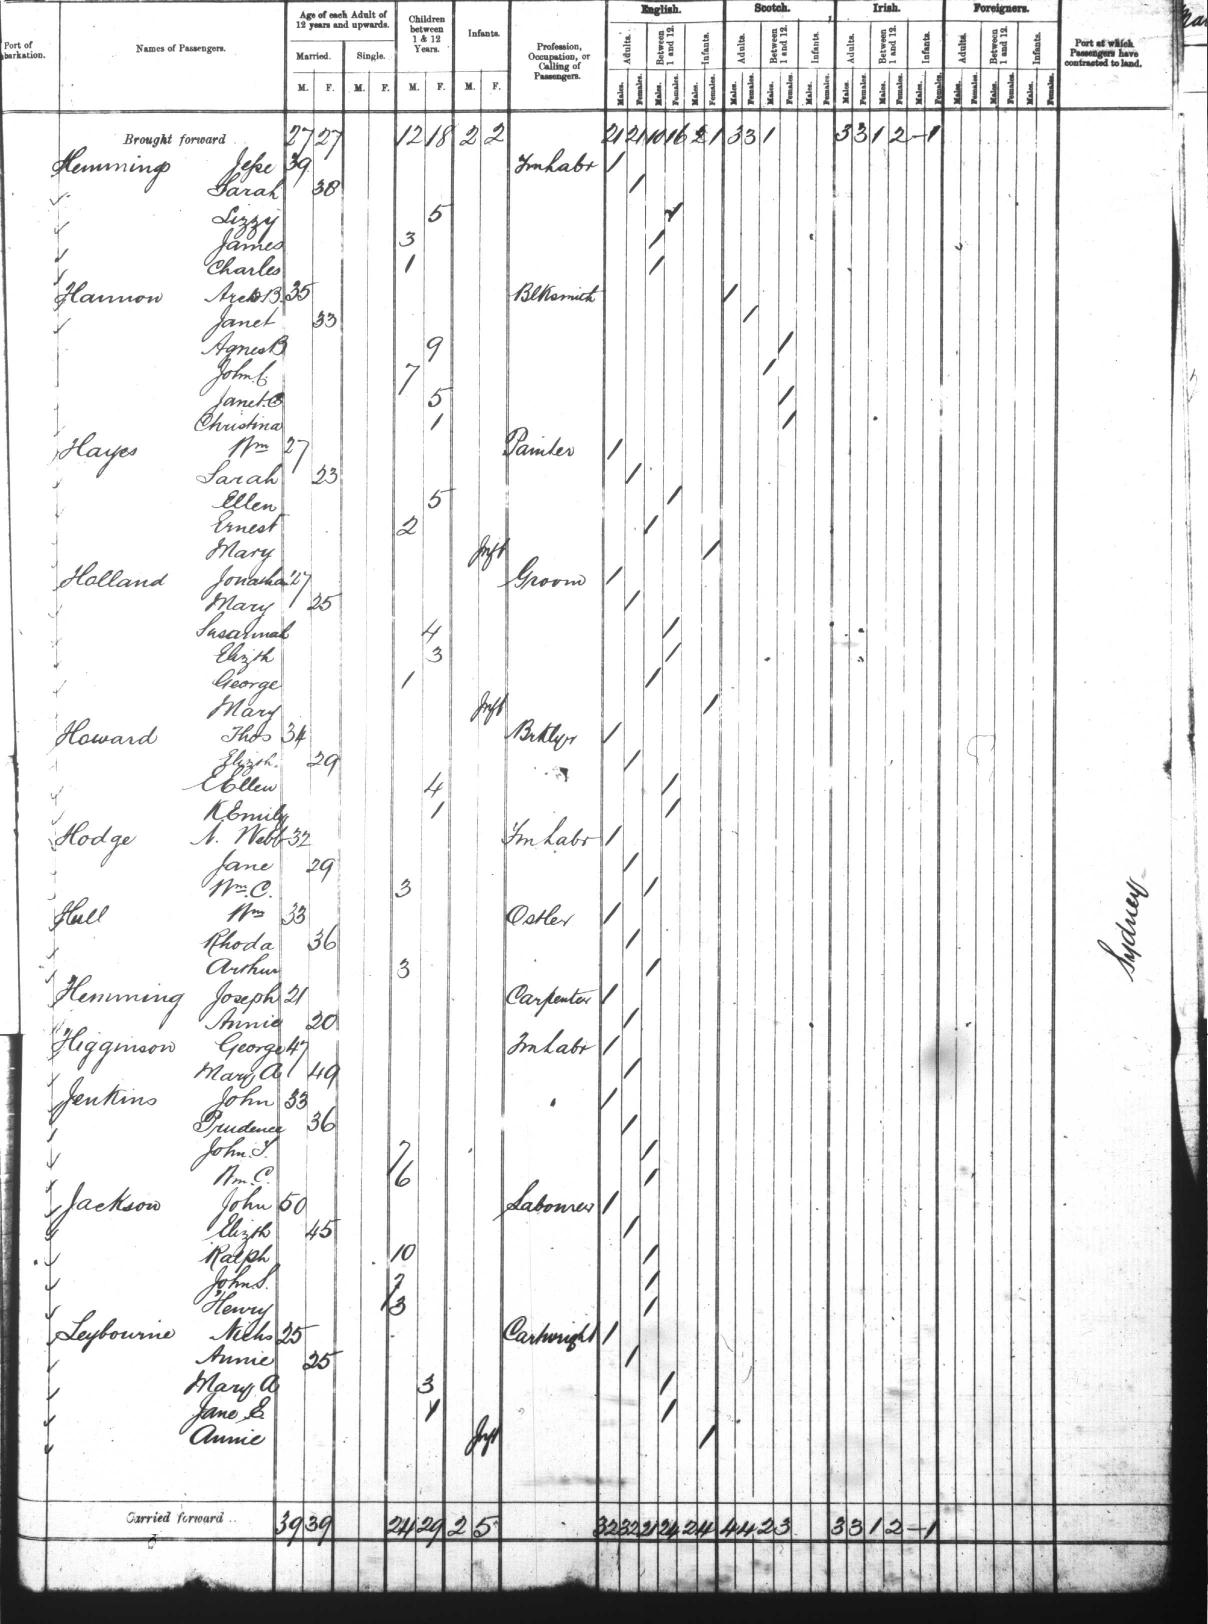 Port of
barkation.
Names of Passengers.
Age of each Adult of
12 years and upwards.
Married.
Single.
M. F. M. F.
Children
between
1 & 12
Years.
M. F.
Infants.
M. F.
Profession,
Occupation, or
Calling of
Passengers.
English.
Scotch.
Irish.
Foreigners.
Adults. Between 1 and 12. Infants. Adults. Between 1 and 12. Infants. Adults. Between 1 and 12. Infants. Adults. Between 1 and 12. Infants.
Males. Females. Males. Females. Males. Females. Males. Females. Males. Females. Males. Females. Males. Females. Males. Females. Males. Females. Males. Females. Males. Females. Males. Females.
Port at which
Passengers have
contracted to land.
Brought forward 27 27 12 18 2 2 21 21 10 16 2 1 3 3 1 3 3 1 2 - 1
Hemming Jesse 39 Fm labr 1
Sarah 38 1
Lizzy 5 1
James 3 1
Charles 1 1
Hannon Arch B. 35 Blksmith 1
Janet 33 1
Agnes B 9 1
John C. 7 1
Janet C 5 1
Christina 1 1
Hayes Wm 27 Painter 1
Sarah 23 1
Ellen 5 1
Ernest 2 1
Mary Inft 1
Holland Jonathan 27 Groom 1
Mary 25 1
Susannah 4 1
Elizth 3 1
George 1 1
Mary Inft 1
Howard Thos 34 Brklyr 1
Elizth. 29 1
E Ellen 4 1
K Emily 1 1
Hodge N. Webb 32 Fm labr 1
Jane 29 1
Wm. C. 3 1
Hull Wm 33 Ostler 1
Rhoda 36 1
Arthur 3 1
Hemming Joseph 21 Carpenter 1
Annie 20 1
Higginson George 47 Fm labr 1
Mary A 49 1
Jenkins John 33 1
Prudence 36 1
John T. 7 1
Wm. C. 6 1
Jackson John 50 Labourer 1
Elizth 45 1
Ralph 10 1
John S. 7 1
Henry 3 1
Leybourne Nichs 25 Cartwright 1
Annie 25 1
Mary A 3 1
Jane E 1 1
Annie Inft 1
Sydney
Carried forward .. 39 39 24 29 2 5 32 32 21 24 2 4 4 4 2 3 3 3 1 2 - 1